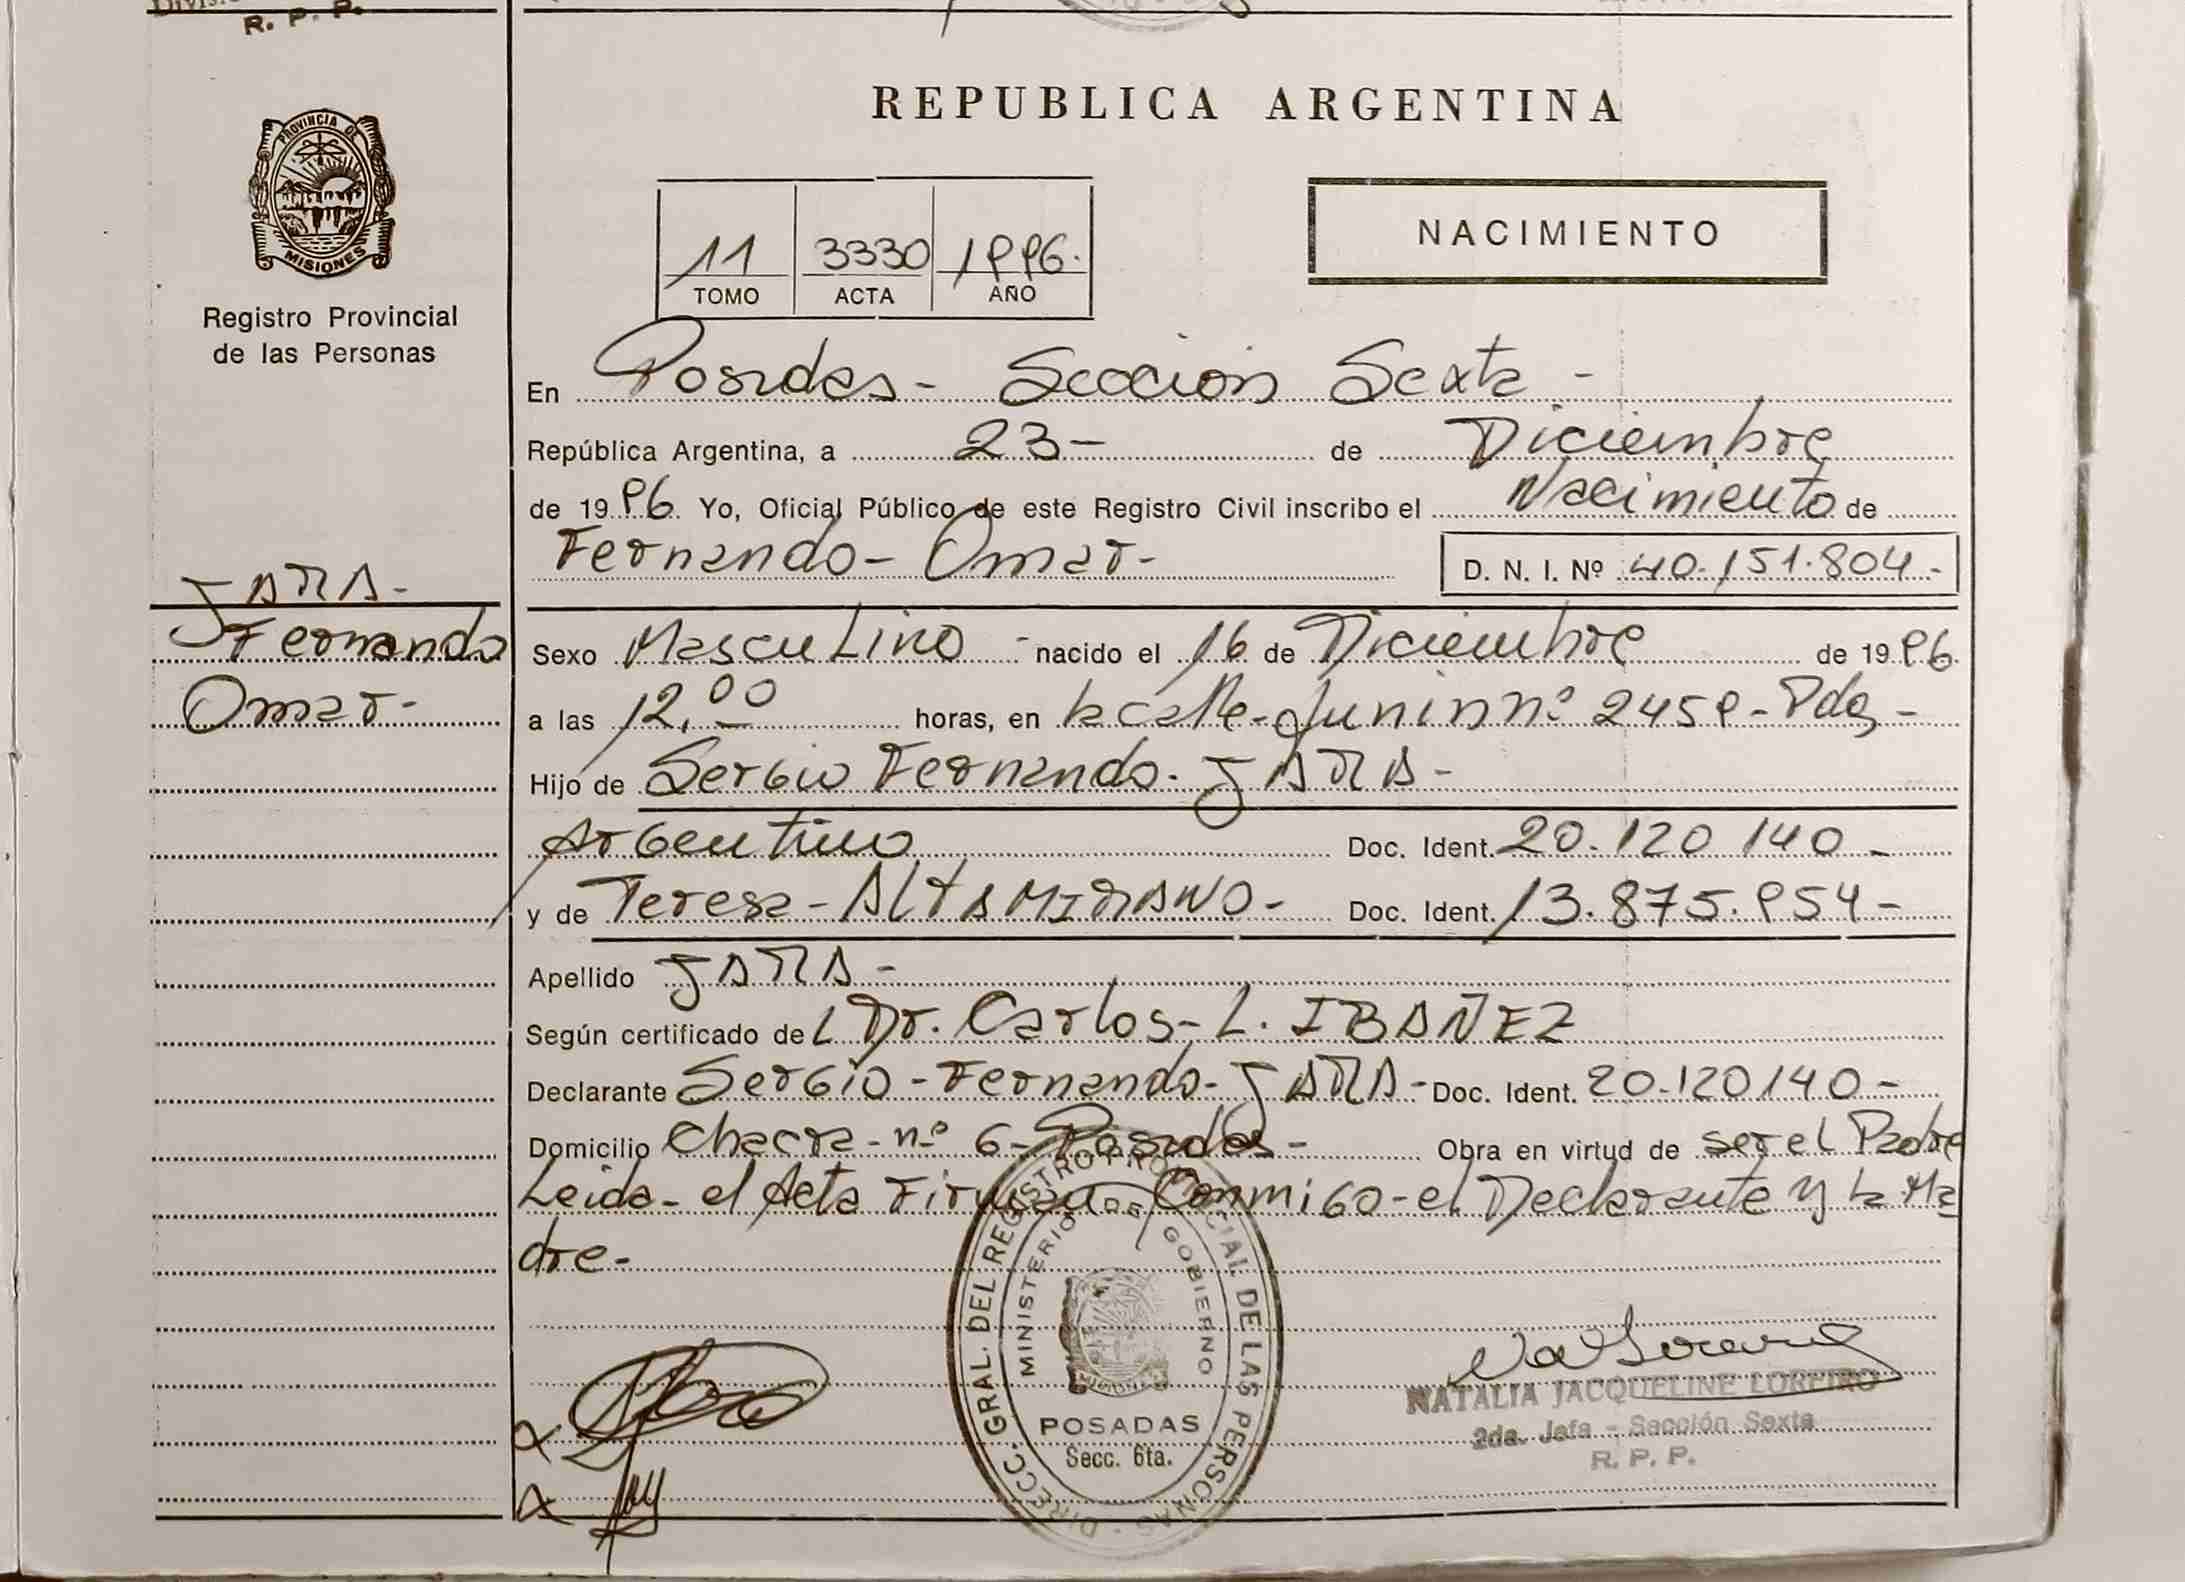 R. P. P.
PROVINCIA DE
MISIONES
Registro Provincial
de las Personas
JARA-
Fernando
Omar-
REPUBLICA ARGENTINA
11 3330 1996.
TOMO ACTA AÑO
NACIMIENTO
En Posadas - Seccion Sexta -
República Argentina, a 23- de Diciembre
de 1996 Yo, Oficial Público de este Registro Civil inscribo el Nacimiento de
Fernando- Omar- D. N. I. Nº 40.151.804.-
Sexo Masculino - nacido el 16 de Diciembre de 1996
a las 12,00 horas, en la calle-Junin nº 2459-Pdas-
Hijo de Sergio Fernando. JARA-
Argentino Doc. Ident. 20.120 140-
y de Teresa-ALTAMIRANO- Doc. Ident. 13.875.954-
Apellido JARA-
Según certificado del Dr. Carlos-L. IBAÑEZ
Declarante Sergio-Fernando-JARA- Doc. Ident. 20.120140-
Domicilio Chacra-nº 6-Posadas- Obra en virtud de ser el Padre
Leida-el Acta Firman Conmigo-el Declarante y la Ma
dre-
DIRECC. GRAL. DEL REGISTRO PROVINCIAL DE LAS PERSONAS
MINISTERIO DE GOBIERNO
MISIONES
POSADAS
Secc. 6ta.
NATALIA JACQUELINE LOREIRO
2da. Jefa - Sección Sexta
R. P. P.